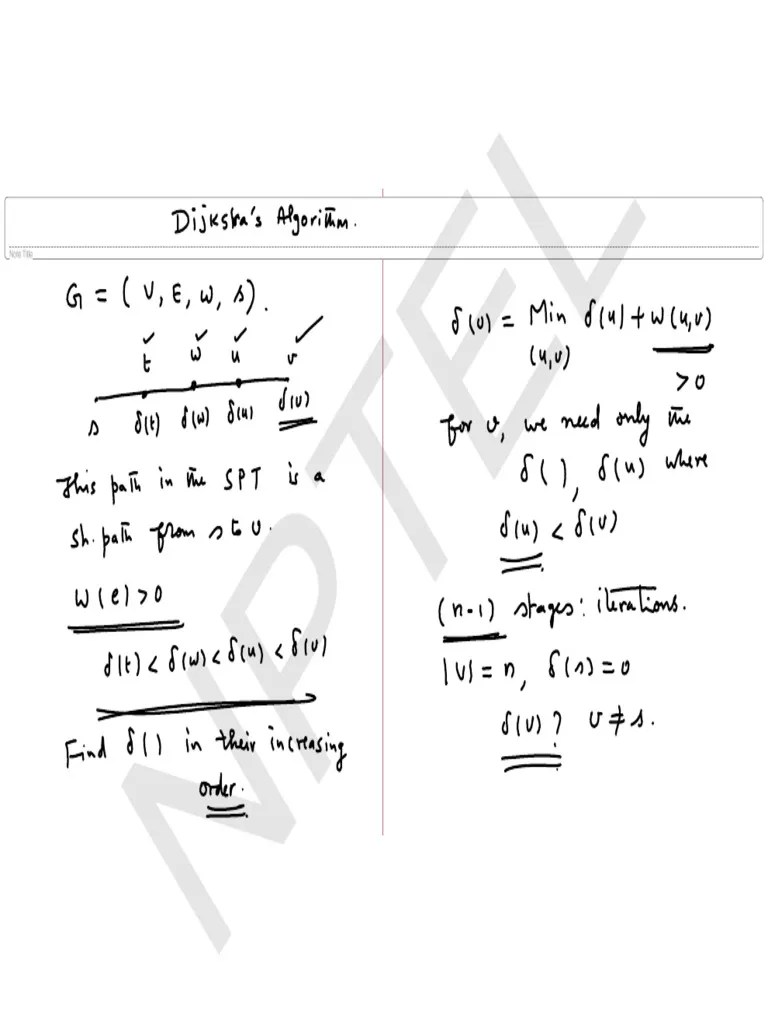 Dijkstra's Algorithm.
Note Title
G = ( V, E, w, s).
t w u v
s δ(t) δ(w) δ(u) δ(v)
This path in the SPT is a
sh. path from s to v.
W(e) > 0
δ(t) < δ(w) < δ(u) < δ(v)
Find δ() in their increasing
order.
δ(v) = Min δ(u) + w(u,v)
(u,v)
> 0
for v, we need only the
δ( ), δ(u) where
δ(u) < δ(v)
(n-1) stages: iterations.
|V| = n, δ(s) = 0
δ(v) ? v ≠ s.
NPTEL